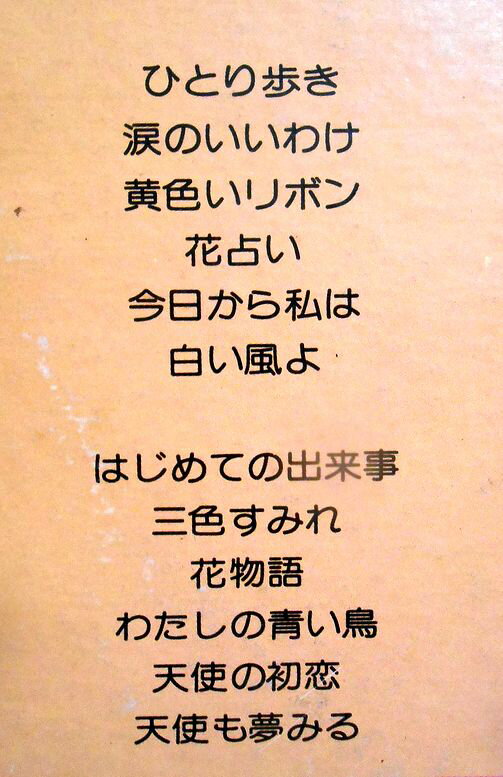 ひとり歩き
涙のいいわけ
黄色いリボン
花占い
今日から私は
白い風よ
はじめての出来事
三色すみれ
花物語
わたしの青い鳥
天使の初恋
天使も夢みる